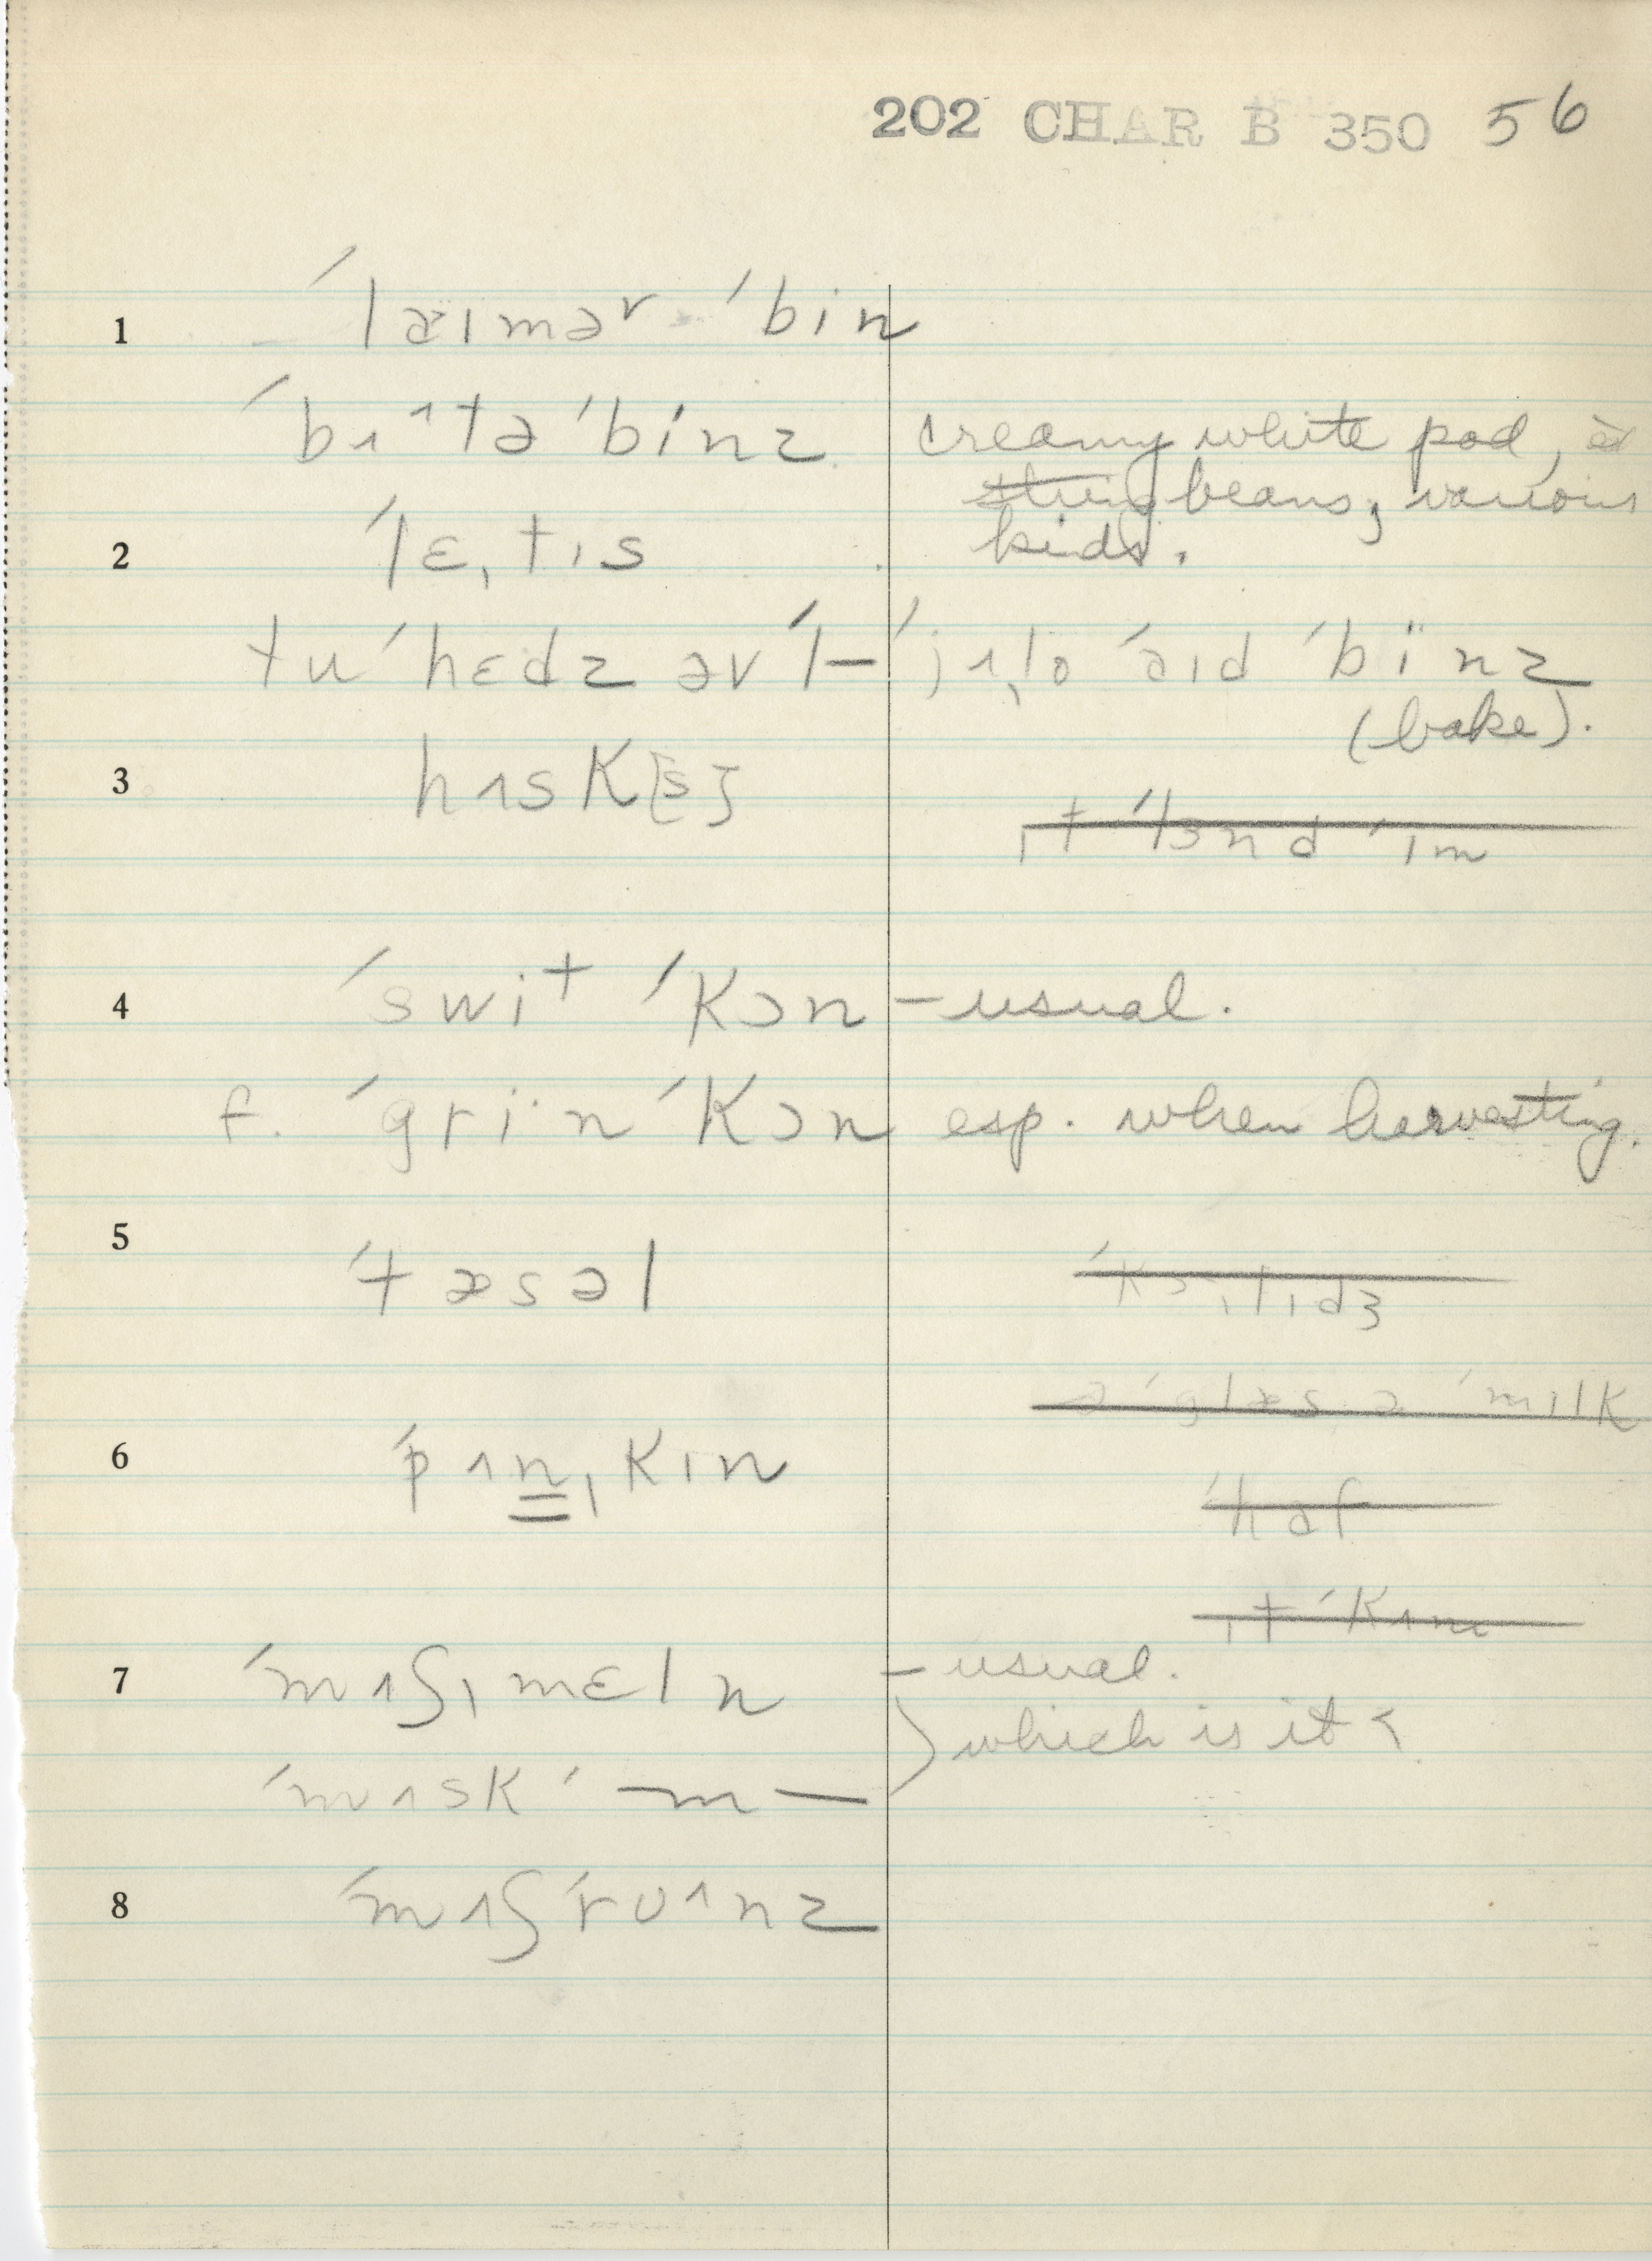 202 CHAR B 350 56
1 ˈlæɪməʳ ˈbin
ˈbʌ^tə ˈbinz creamy white pod,
string beans, various
kids.
2 ˈlɛˌtɪs
tu ˈhɛdz əv ˈl— ˈjʌˌlo ˈaɪd ˈbïnz
(bake).
3 hʌsk[s]
ɪt ˈlɜnd ˈɪm
4 ˈswiᵗ ˈkɔn – usual.
f. ˈgri·n ˈkɔn esp. when harvesting.
5 ˈtæsəl
ə ˈglæs ə ˈmɪlk
6 ˈpʌnˌkɪn
ˈhaf
ɪt ˈkʌm
7 ˈmʌʃˌmɛln – usual.
) which is it ?
ˈmʌsk ˈ—m—
8 ˈmʌʃrʊ^nz